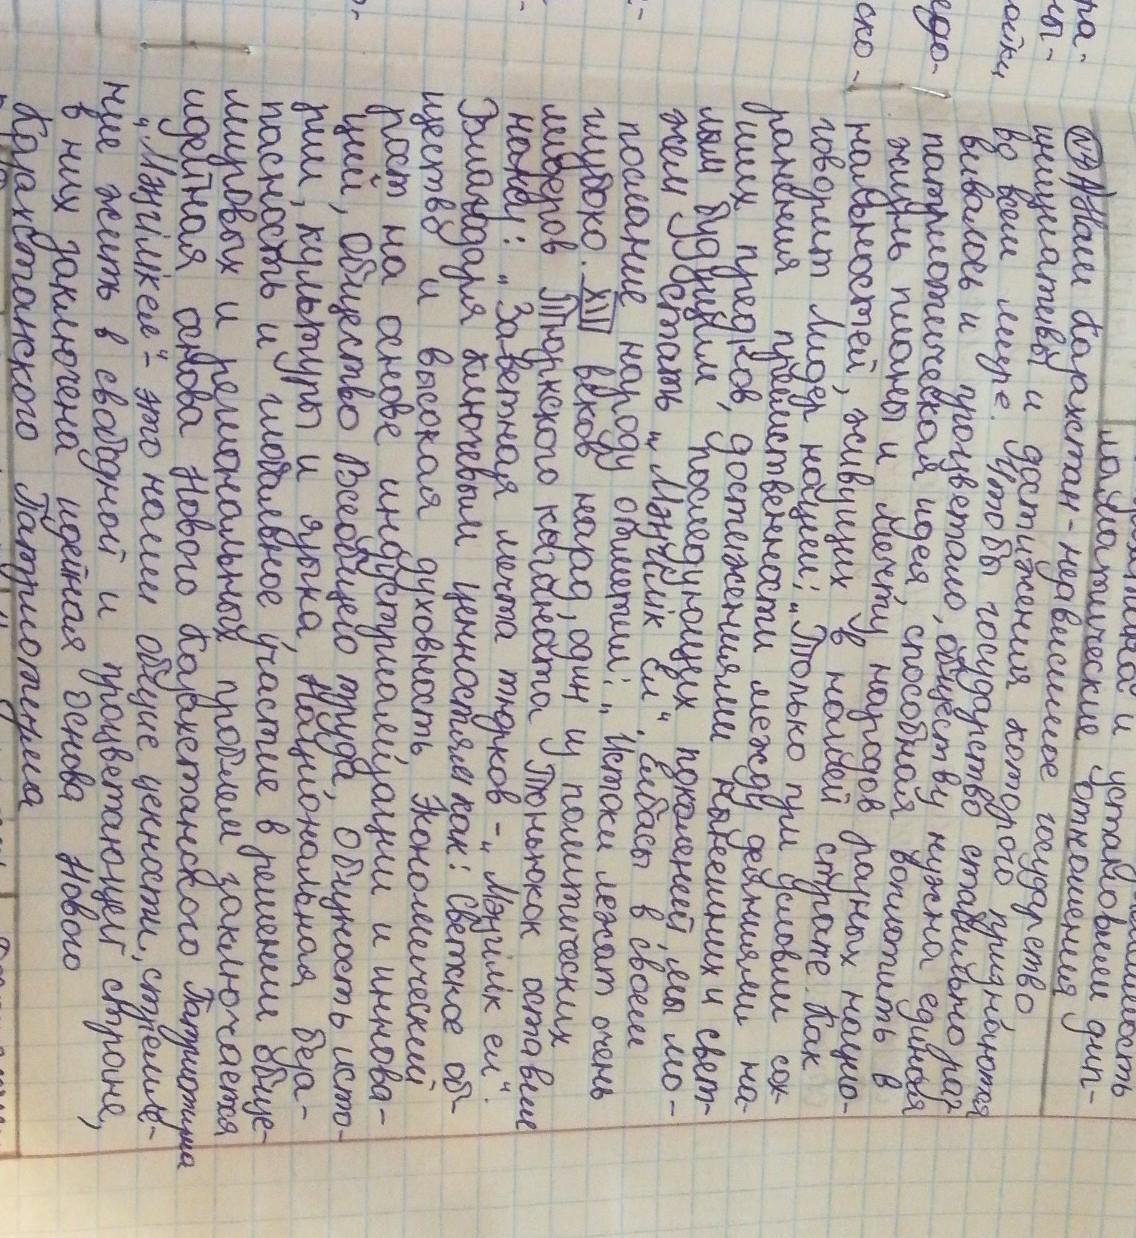 ра-
ны-
ойки
едо-
ско-
и установляем дип-
ломатические отношения
№7) Наш Казахстан - независимое государство,
инициативы и достижения которого признаются
во всем мире. Чтобы государство стабильно раз-
вивалось и процветало, обществу нужна единая
патриотическая идея, способная воплотить в
жизнь планы и мечту народов разных нацио-
нальностей, живущих в нашей страте. Как
говорит Лидер нации: „Только при условии сох-
ранения преемственности между деяниями на-
ших предков, достежениями нынешних и свет-
лым будущим последующих поколений, мы мо-
жем удостать „Мәңгілік ел". Елбасы в своем
послание народу отметил: „Истоки лежат очень
глубоко. XIII веков назад, один из политических
лидеров Тюркского каганата Тоньюкок оставил
наказ: „Заветная мечта тюрков - „Мәңгілік ел".
Благодаря ключевым ценностям как: Светское об-
щество и высокая духовность, Экономический
рост на основе индустриализации и иннова-
ций, общество Всеобщего труда, Общность исто-
рии, культуры и языка, Национальная безо-
пасность и глобальное участие в решении обще-
мировых и региональных проблем заключается
идейная основа Нового Казахстанского Патриотизма
„Мәңгілік ел" - это наши общие ценности, стремле-
ние жить в свободной и процветающей стране,
в них заключена идейная основа Нового
Казахстанского Патриотизма